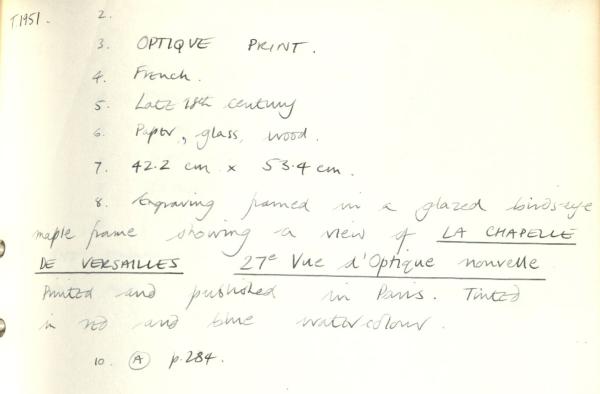 T1951. 2.
3. OPTIQUE PRINT.
4. French.
5. Late 18th century
6. Paper, glass, wood.
7. 42.2 cm x 53.4 cm.
8. Engraving framed in a glazed birds-eye
maple frame showing a view of LA CHAPELLE
DE VERSAILLES 27e Vue d'Optique nouvelle
Printed and published in Paris. Tinted
in red and blue watercolour.
10. A p.284.